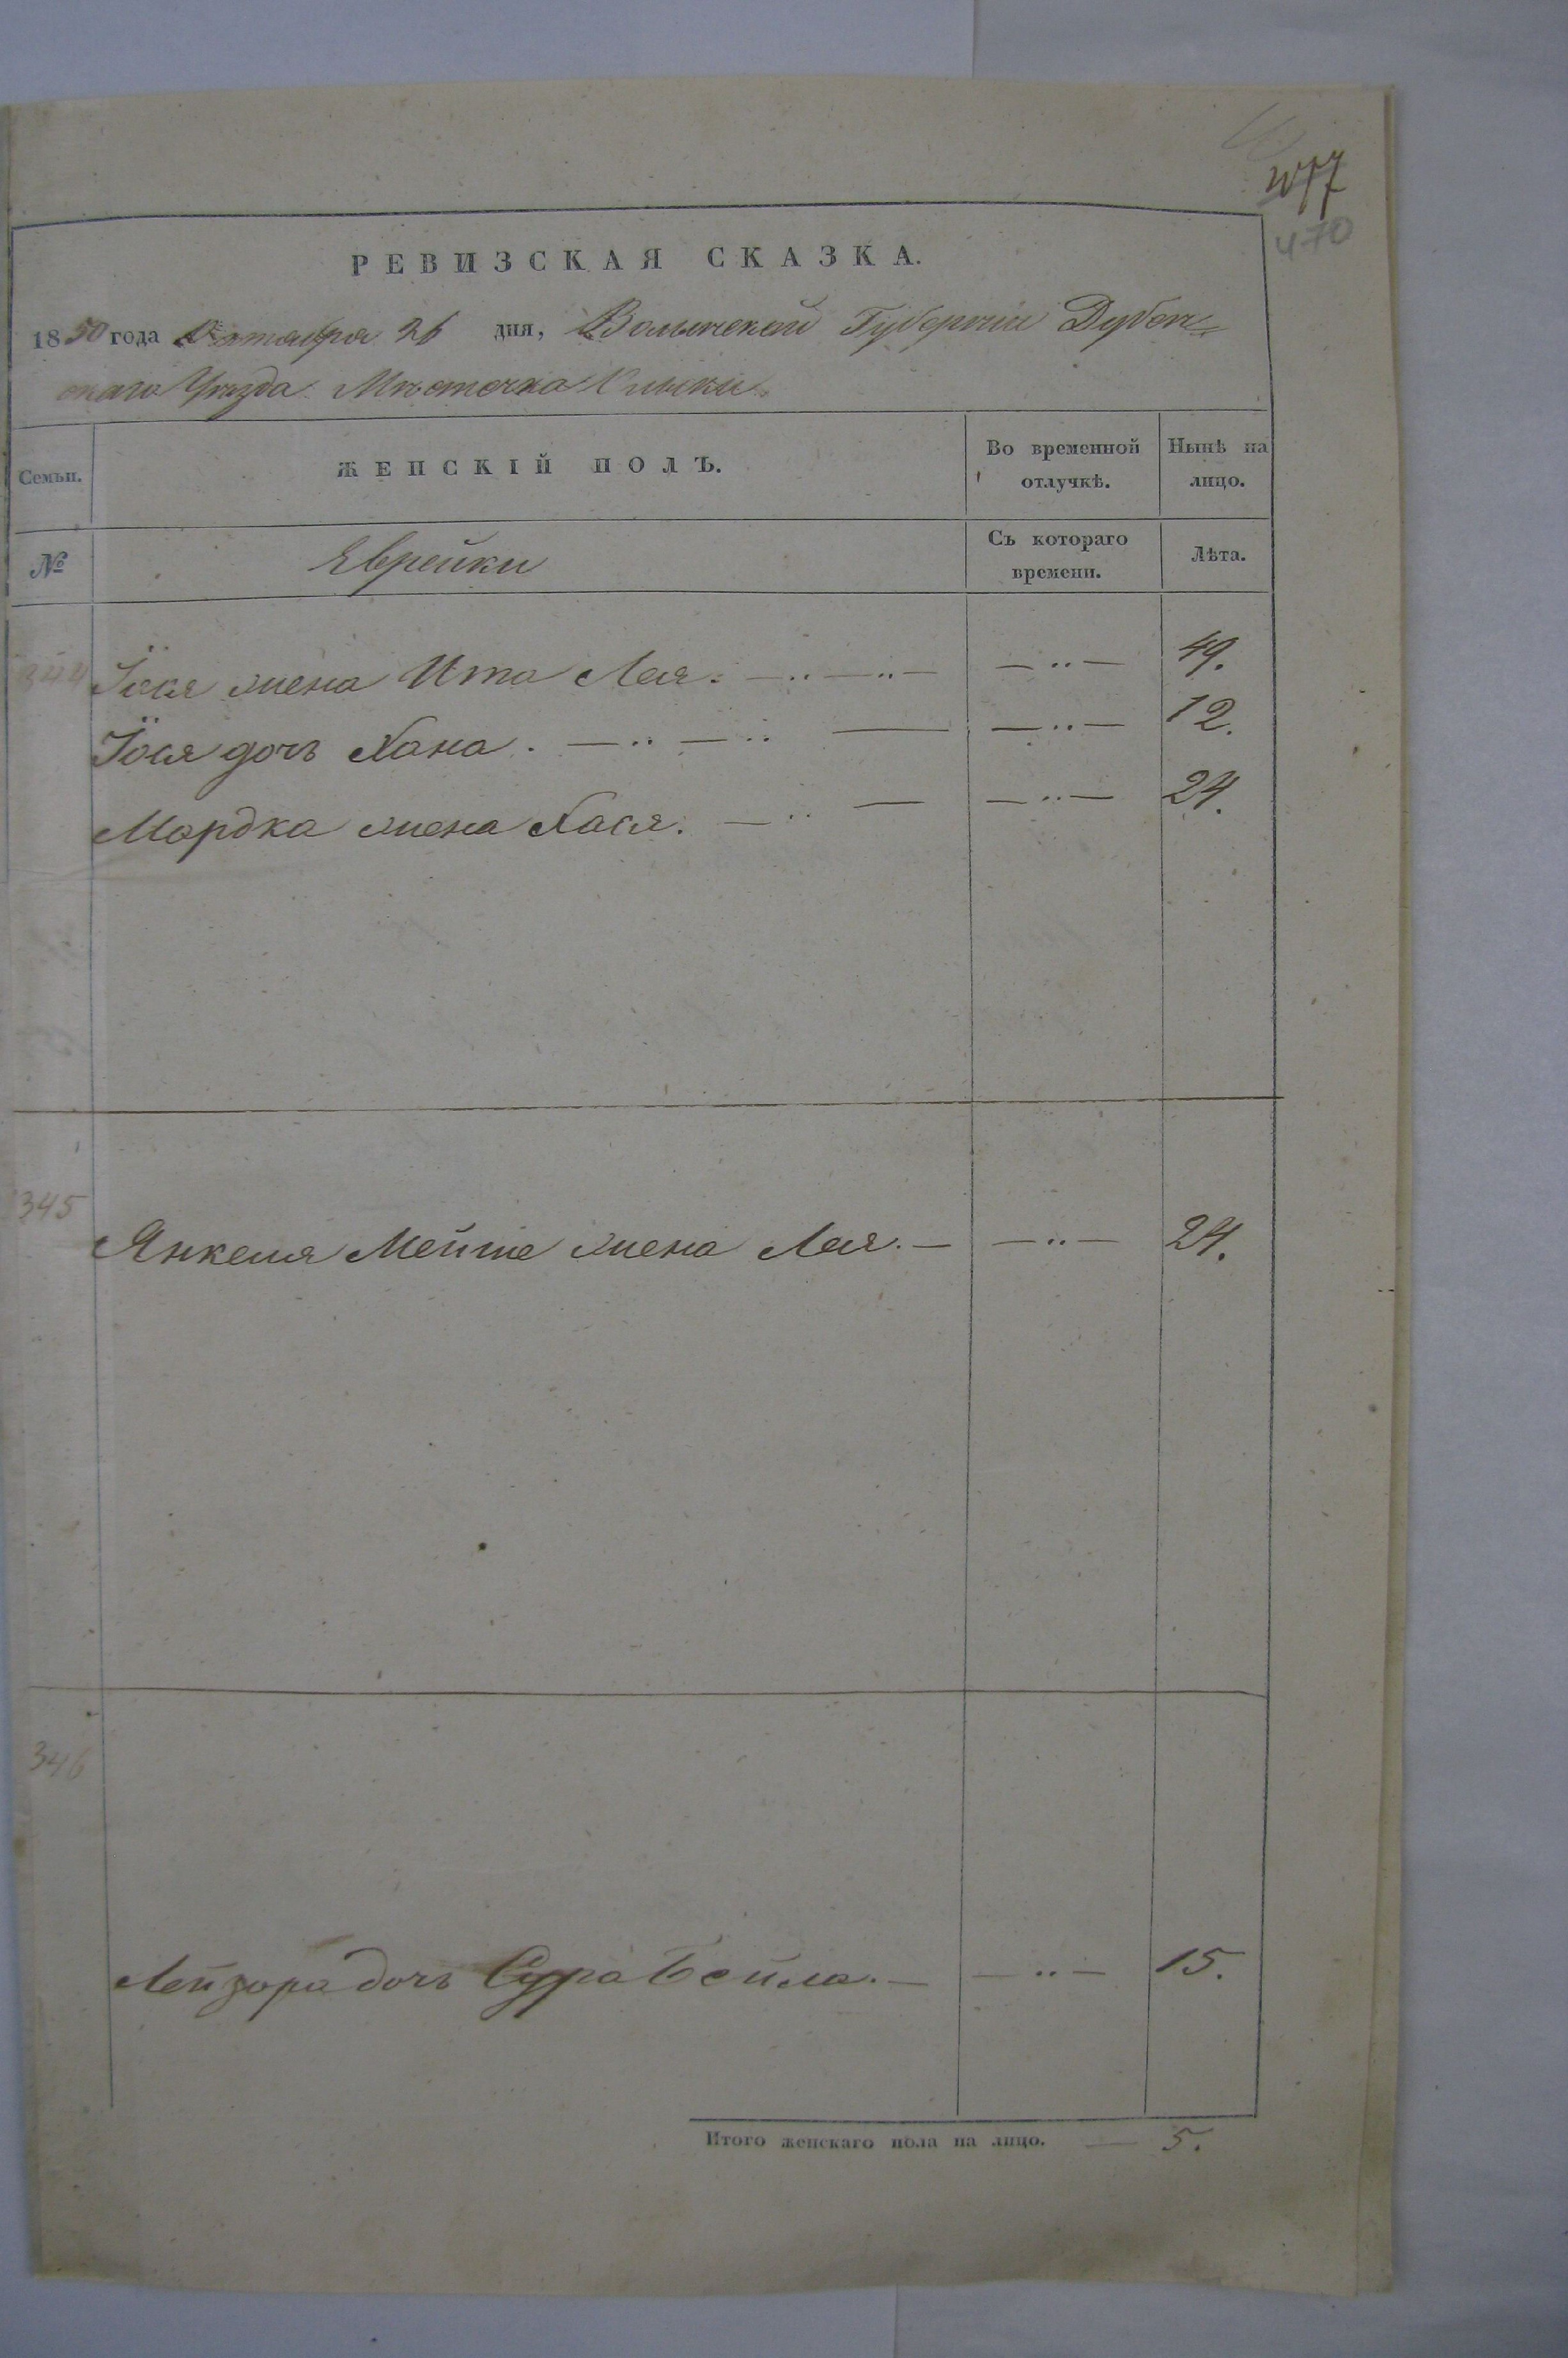 477
470
РЕВИЗСКАЯ СКАЗКА.
1850 года Октября 26 дня, Волынской Губернии Дубен-
скаго Уѣзда Мѣстечка Олыки
Семьи. ЖЕНСКІЙ ПОЛЪ. Во временной отлучкѣ. Нынѣ на лицо.
№ Еврейки Съ котораго времени. Лѣта.
344 Іося жена Ита Лея. — „ — „ — — „ — 49.
Іося дочь Хана. — „ — „ — — „ — 12.
Мордка жена Хася. — „ — — „ — 24.
345 Янкеля Мейше жена Лея. — — „ — 24.
346
Лейзора дочь Сура Бейла. — — „ — 15.
Итого женскаго пола на лицо. — 5.